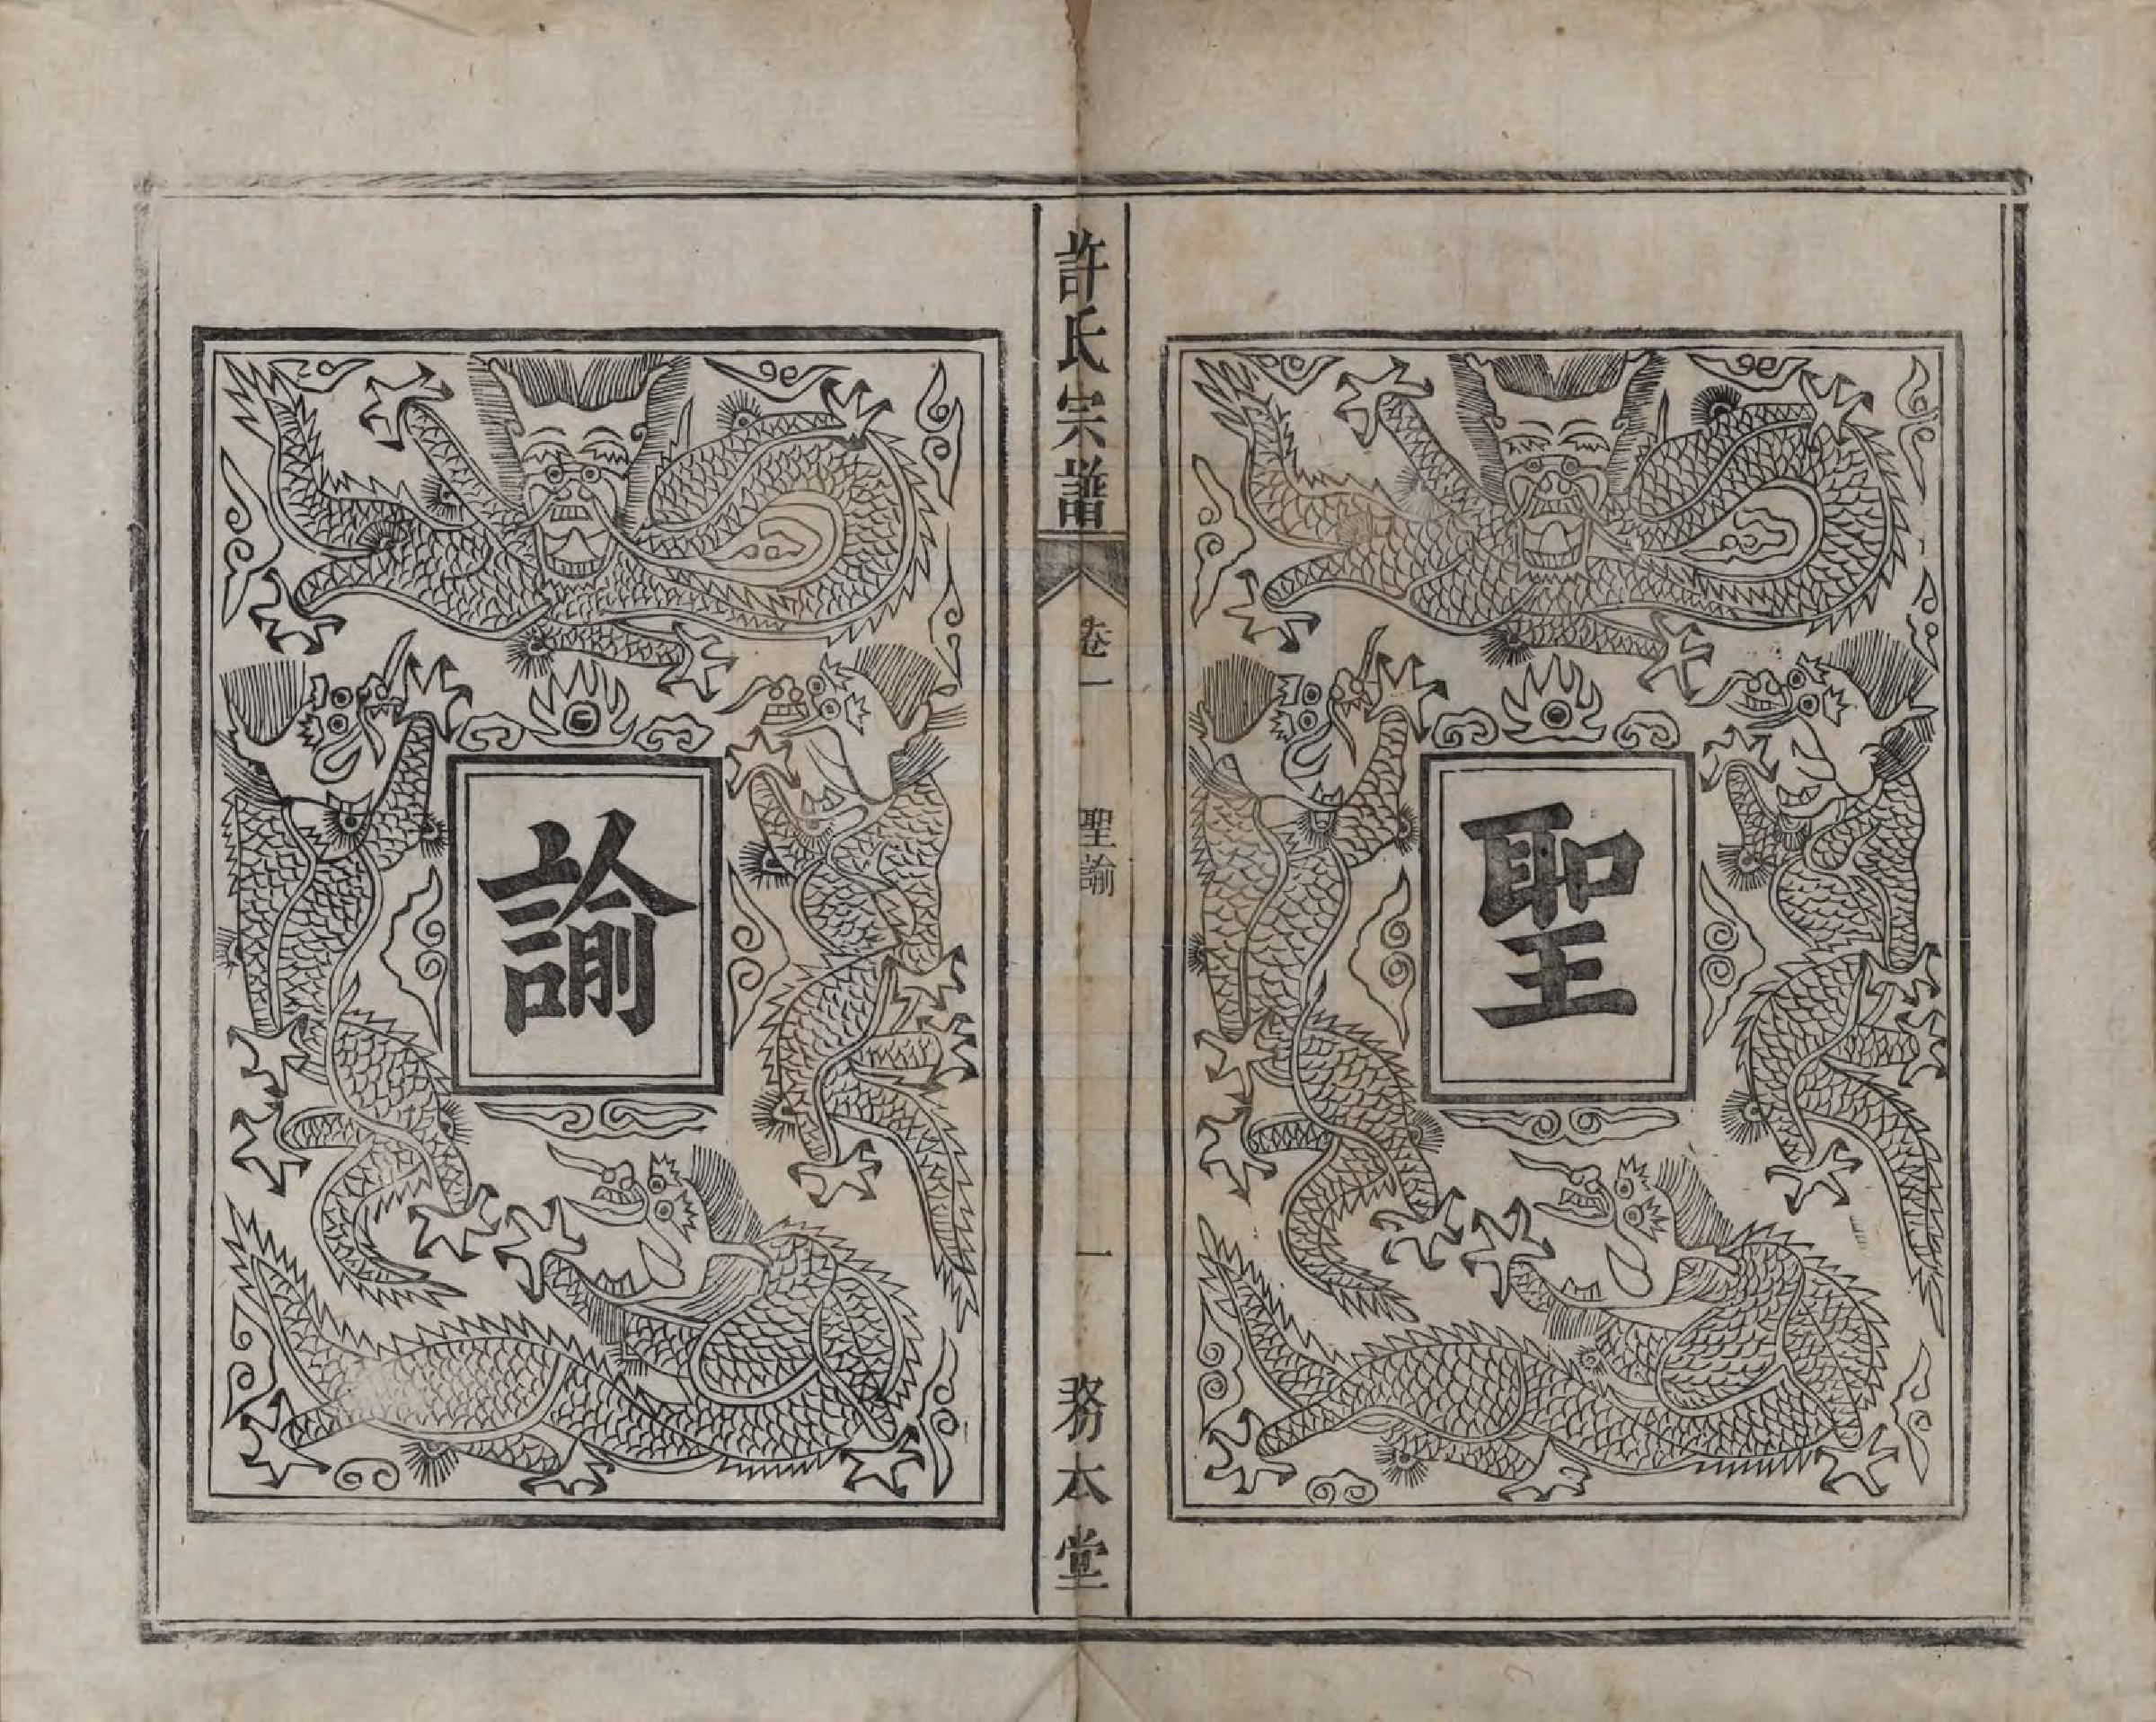 聖
許氏宗譜
卷一
聖諭
一
務本堂
諭